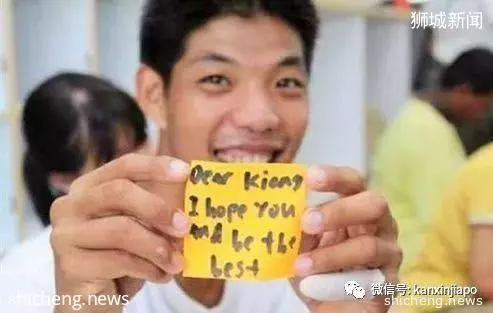 狮城新闻
Dear Kiang
I hope you
and be the
best
微信号: kanxinjiapo
shicheng.news
shicheng.news